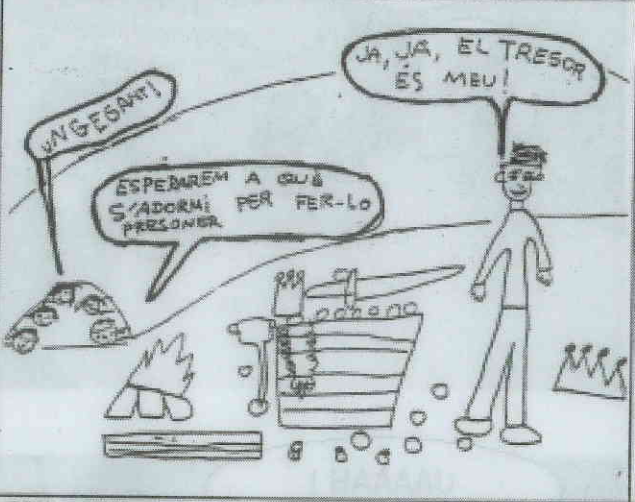 UN GEGANT!
ESPERAREM A QUÈ
S'ADORMI PER FER-LO
PRESONER
JA, JA, EL TRESOR
ÉS MEU!